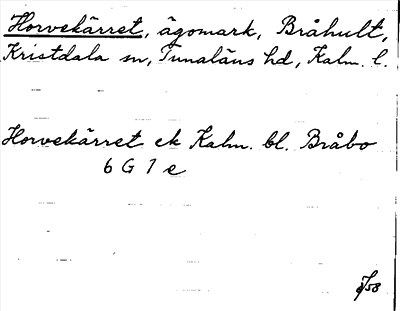 Horvekärret, ägomark, Bråhult,
Kristdala sn, Tunaläns hd, Kalm. l.
Horvekärret ek Kalm. bl. Bråbo
6 G 7 e